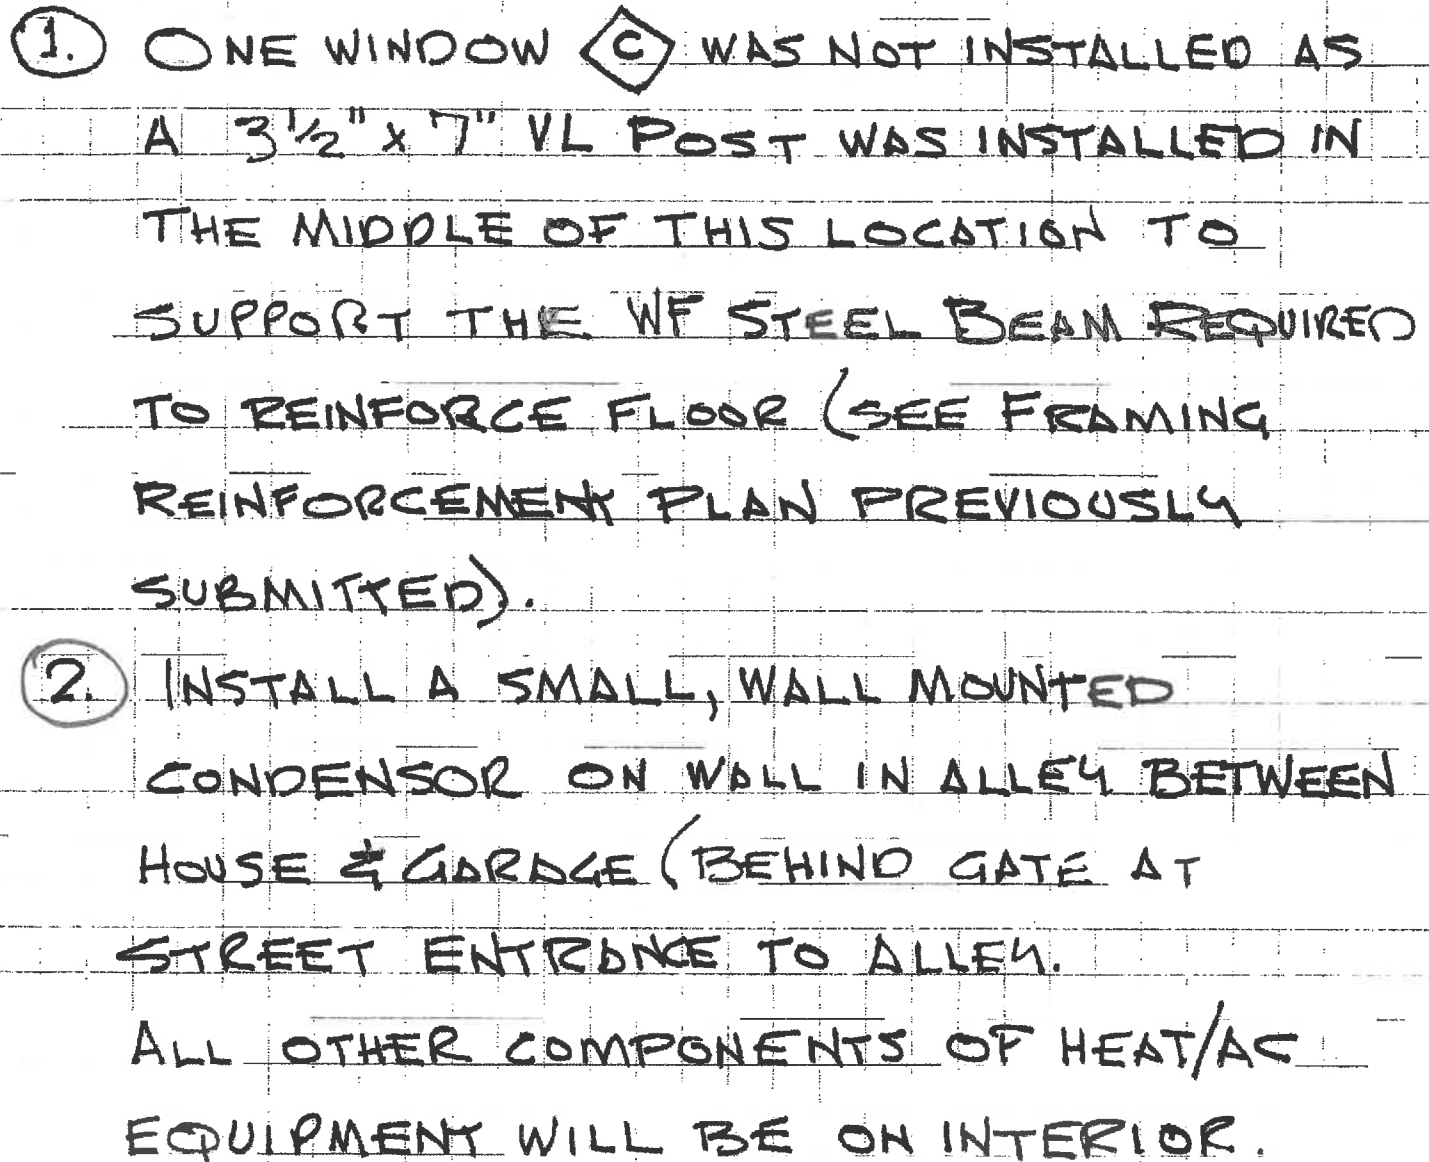 1. ONE WINDOW C WAS NOT INSTALLED AS
A 3 1/2" x 7" VL POST WAS INSTALLED IN
THE MIDDLE OF THIS LOCATION TO
SUPPORT THE WF STEEL BEAM REQUIRED
TO REINFORCE FLOOR (SEE FRAMING
REINFORCEMENT PLAN PREVIOUSLY
SUBMITTED).
2. INSTALL A SMALL, WALL MOUNTED
CONDENSOR ON WALL IN ALLEY BETWEEN
HOUSE & GARAGE (BEHIND GATE AT
STREET ENTRANCE TO ALLEY.
ALL OTHER COMPONENTS OF HEAT/AC
EQUIPMENT WILL BE ON INTERIOR.